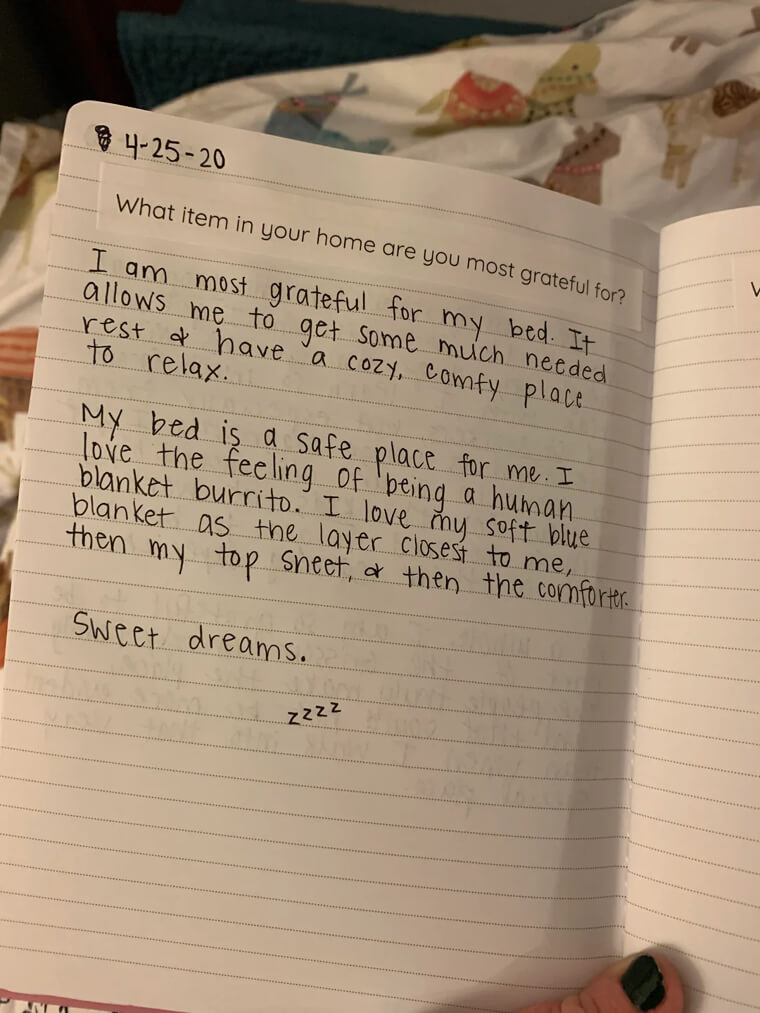 4-25-20
What item in your home are you most grateful for?
I am most grateful for my bed. It
allows me to get some much needed
rest & have a cozy, comfy place
to relax.
My bed is a safe place for me. I
love the feeling of being a human
blanket burrito. I love my soft blue
blanket as the layer closest to me,
then my top sheet, & then the comforter.
Sweet dreams.
zzzz